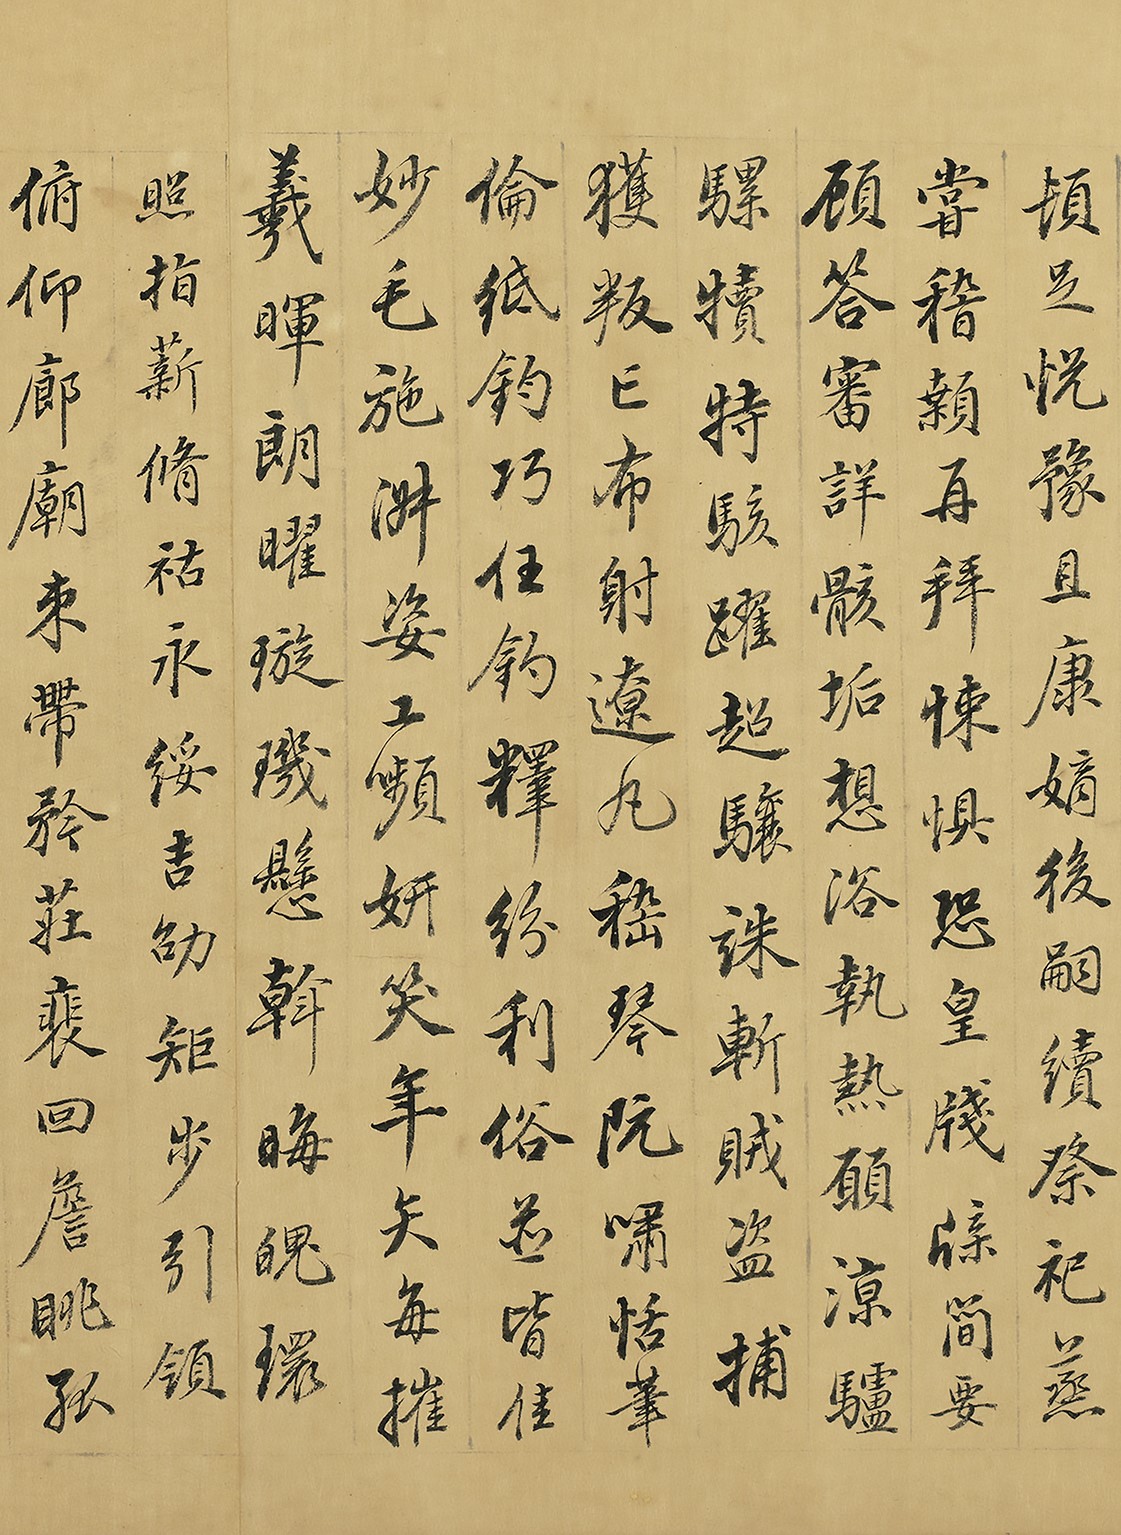 頓足悅豫且康嫡後嗣續祭祀蒸
嘗稽顙再拜悚懼恐皇牋牒簡要
顧答審詳骸垢想浴執熱願涼驢
騾犢特駭躍超驤誅斬賊盜捕
獲叛亡布射遼丸嵇琴阮嘯恬筆
倫紙鈞巧任釣釋紛利俗並皆佳
妙毛施淑姿工嚬妍笑年矢每摧
羲暉朗曜璇璣懸斡晦魄環
照指薪脩祜永綏吉劭矩步引領
俯仰廊廟束帶矜莊裴回詹眺孤